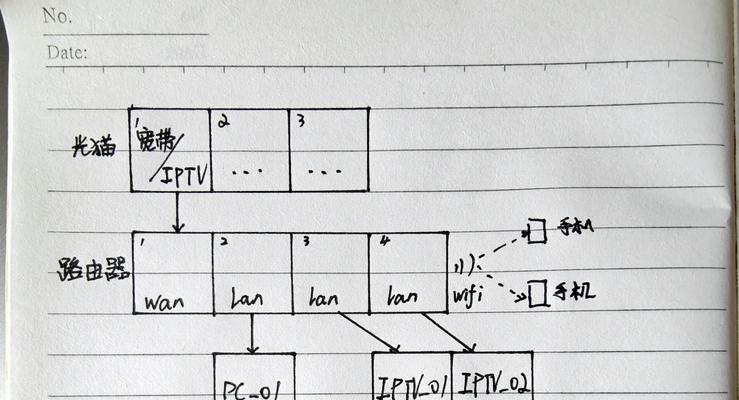 No.
Date:
光猫
1 2 3
宽带/IPTV ... ...
路由器
1 2 3 4
wan Lan Lan Lan wifi
手机
手机
PC_01 IPTV_01 IPTV_02